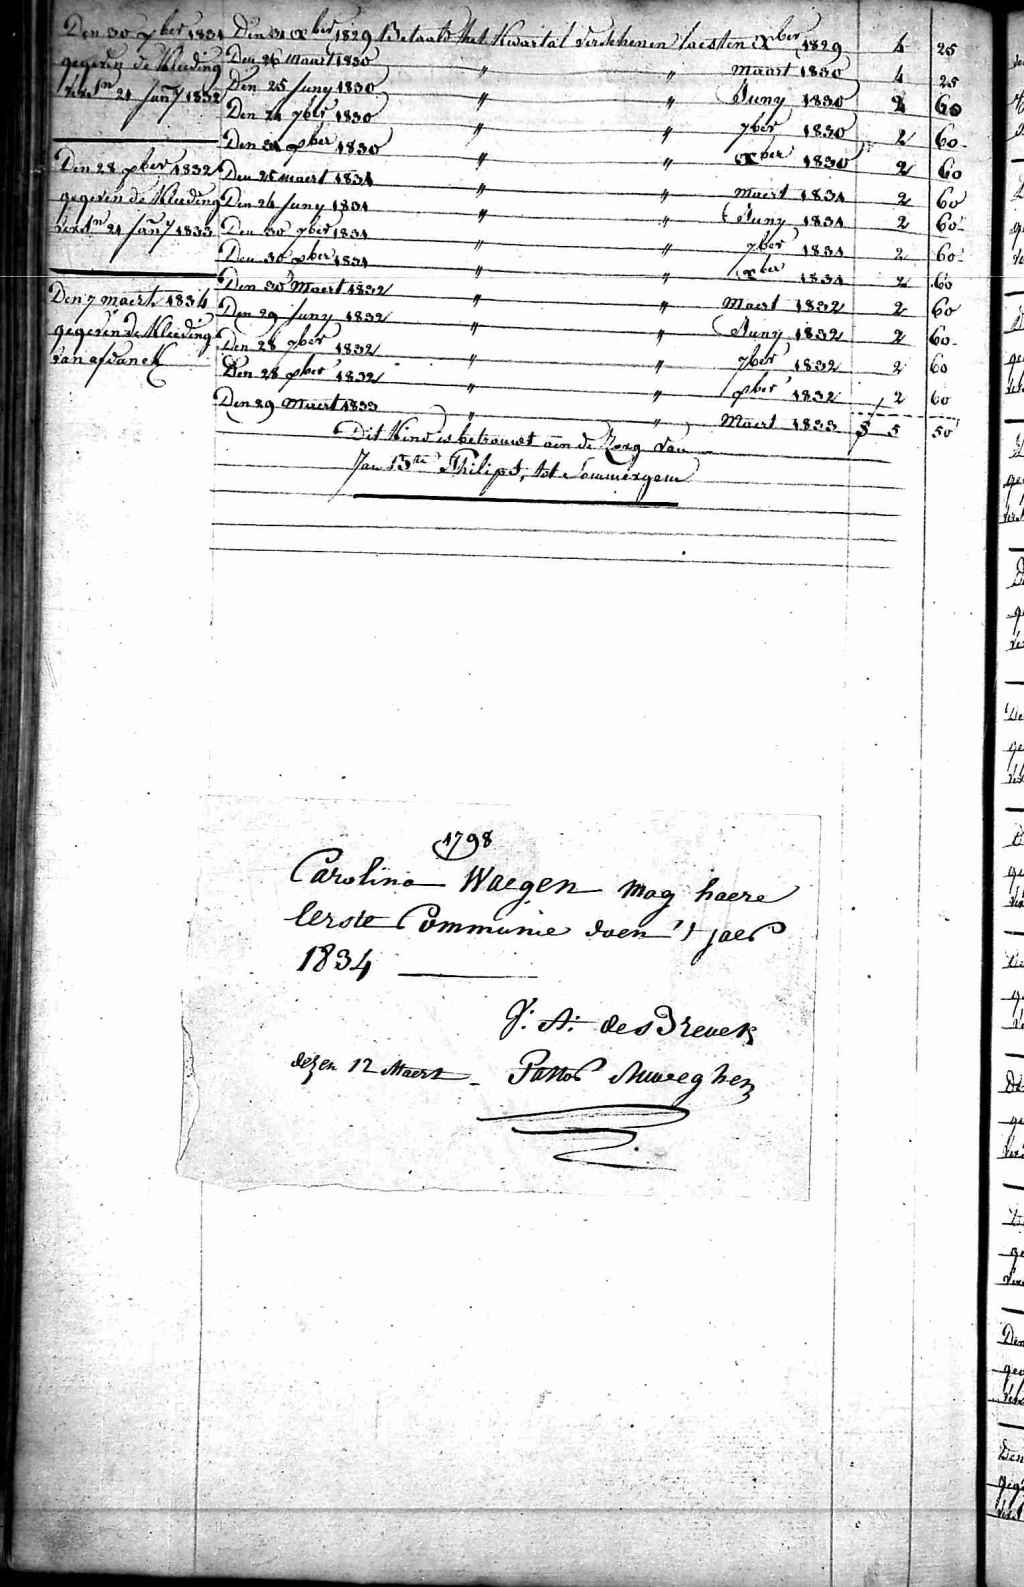 Den 30 9ber 1831
gegeven de Kleeding
verst.n 21 Jan.y 1832
Den 28 xber 1832
gegeven de Kleeding
verst.n 21 Jan.y 1833
Den 7 maert 1834
gegeven de Kleeding
van afdanck
Den 31 xber 1829 Betaald het Kwartal verschenen laesten xber 1829 4 25
Den 26 maart 1830 " " Maart 1830 4 25
Den 25 Juny 1830 " " Juny 1830 2 60
Den 24 7ber 1830 " " 7ber 1830 2 60
Den 31 xber 1830 " " xber 1830 2 60
Den 25 maert 1831 " " Maert 1831 2 60
Den 24 Juny 1831 " " Juny 1831 2 60
Den 30 7ber 1831 " " 7ber 1831 2 60
Den 30 xber 1831 " " xber 1831 2 60
Den 30 Maert 1832 " " Maert 1832 2 60
Den 29 Juny 1832 " " Juny 1832 2 60
Den 28 7ber 1832 " " 7ber 1832 2 60
Den 28 xber 1832 " " xber 1832 2 60
Den 29 Maert 1833 " " Maert 1833 5 50
Dit Kind is betrouwt aen de Zorg van
Jan Bte Philips, tot Sommergem
1798
Carolina Waegen mag haere
Eerste Communie doen 't jaer
1834
J: A: de
dezen 12 Maert - Pastor